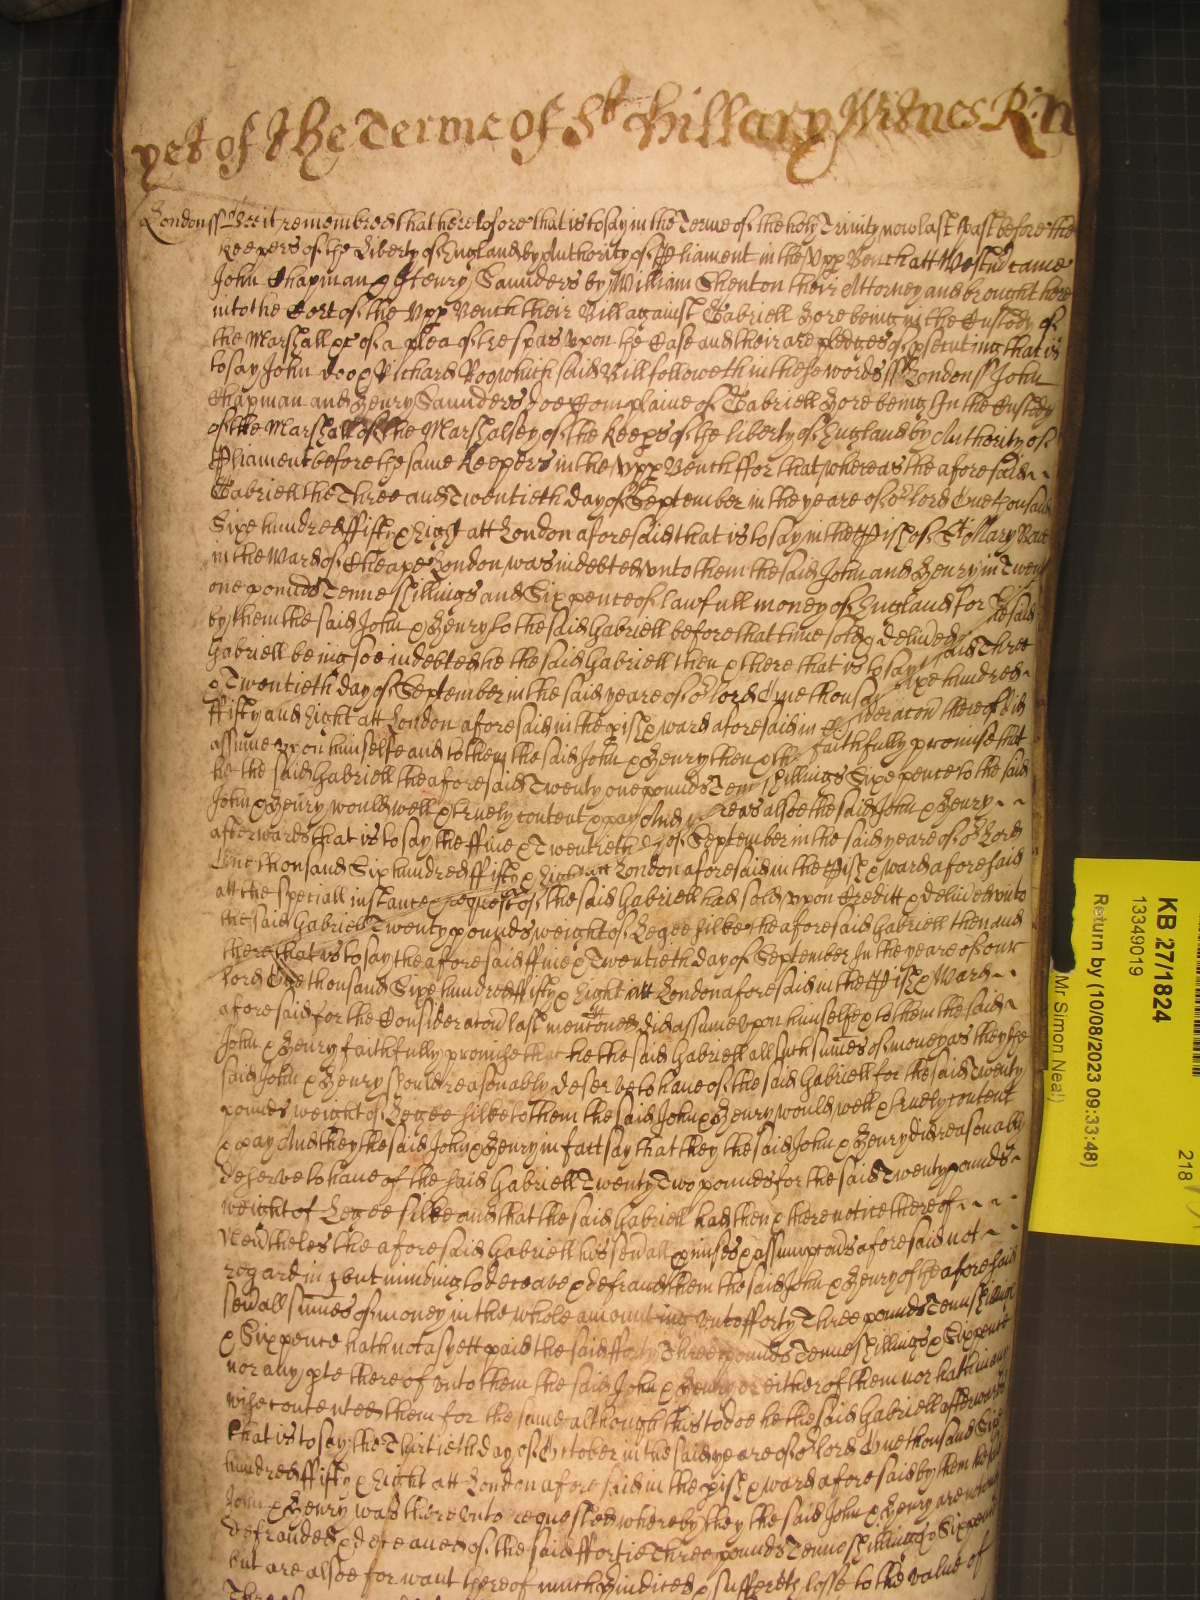 yet of the Terme of St Hillary Witnes R: N
Londonss Bee it remembred that heretofore that is to say in the Terme of the holy Trinity now last past before the
Keepers of the Liberty of England by Authority of Pliament in the Upp Bench att Westm came
John Chapman & Henry Saunders by William Shenton their Attorney and brought here
into the Cort of the Upp Bench their Bill against Gabriell Hore being in the Custody of
the Marshall &c of a plea of trespas upon the Case and their are pledges of psecuting that is
to say John doo & Richard Roo which said Bill followeth in these words ss Londonss John
Chapman and Henry Saunders doe Complaine of Gabriell Hore being In the Custody
of the Marshall of the Marshalsey of the Keeps of the liberty of England by Authority of
Pliament before the same Keepers in the Upp Bench ffor that whereas the aforesaid
Gabriell the Three and Twentieth day of September in the yeare of or lord One thousand
Sixe hundred ffifty & Eight att London aforesaid that is to say in the Pish of St Mary
in the Ward of Cheape London was indebted unto them the said John and Henry in Twenty
one pounds Tenne shillings and Sixpence of lawfull money of England for
by them the said John & Henry to the said Gabriell before that time sold & delived the said
Gabriell being soe indebted he the said Gabriell then & there that is to say said Three
& Twentieth day of September in the said yeare of or lord One thousa Sixe hundred
ffifty and Eight att London aforesaid in the pish & ward aforesaid in thereof did
assume upon himselfe and to them the said John & Henry then & th faithfully promise that
he the said Gabriell the aforesaid Twenty one pounds Tenn shillings Sixe pence to the said
John & Henry would well & truely content & pay And reas alsoe the said John & Henry
afterwards that is to say the ffive & Twentieth d of September in the said yeare of or Lord
One thousand Six hundred ffifty & Eight att London aforesaid in the Pish & ward aforesaid
att the speciall instance & request of the said Gabriell had sold upon Creditt & delived unto
the said Gabriell Twenty pounds weight of Legee silke the aforesaid Gabriell then and
there that is to say the aforesaid ffive & Twentieth day of September In the yeare of our
lord One thousand Sixe hundred ffifty & Eight att London aforesaid in the Pish & Ward
aforesaid for the Consideracon last mentioned did assume upon himselfe & to them the said
John & Henry faithfully promise that he the said Gabriell all such sumes of money as they the
said John & Henry should reasonably deserve to have of the said Gabriell for the said Twenty
pounds weight of Legee silke to them the said John & Henry would well & truely content
& pay And they the said John & Henry in fact say that they the said John & Henry did reasonally
deserve to have of the said Gabriell Twenty Two pounds for the said Twenty pounds
weight of Legee silke and that the said Gabriell had then & there notice thereof
Nevtheles the aforesaid Gabriell his sevall pmises & assumpcons aforesaid not
regarding but minding to deceave & defraud them the said John & Henry of the aforesaid
sevall sumes of money in the whole amounting unto fforty Three pounds Tenn shillings
& Sixpence hath not as yett paid the said fforty Three pounds Tenne shillings & Sixpence
nor any pte thereof unto them the said John & Henry or either of them nor hath in any
wise contented them for the same although this to doe he the said Gabriell afterwards
that is to say the Thirtieth day of October in the said yeare of or lord One thousand Six
hundred ffifty & Eight att London aforesaid in the pish & ward aforesaid by them the said
John & Henry was there unto requested whereby they the said John & Henry are not only
defrauded & deceaved of the said ffortie Three pounds Tenne shillings & Sixpence
but are alsoe for want thereof much pindiced & suffereth losse to the value of
KB 27/1824
133490019
Return by (10/08/2023 09:33:48)
Mr Simon Neal)
218